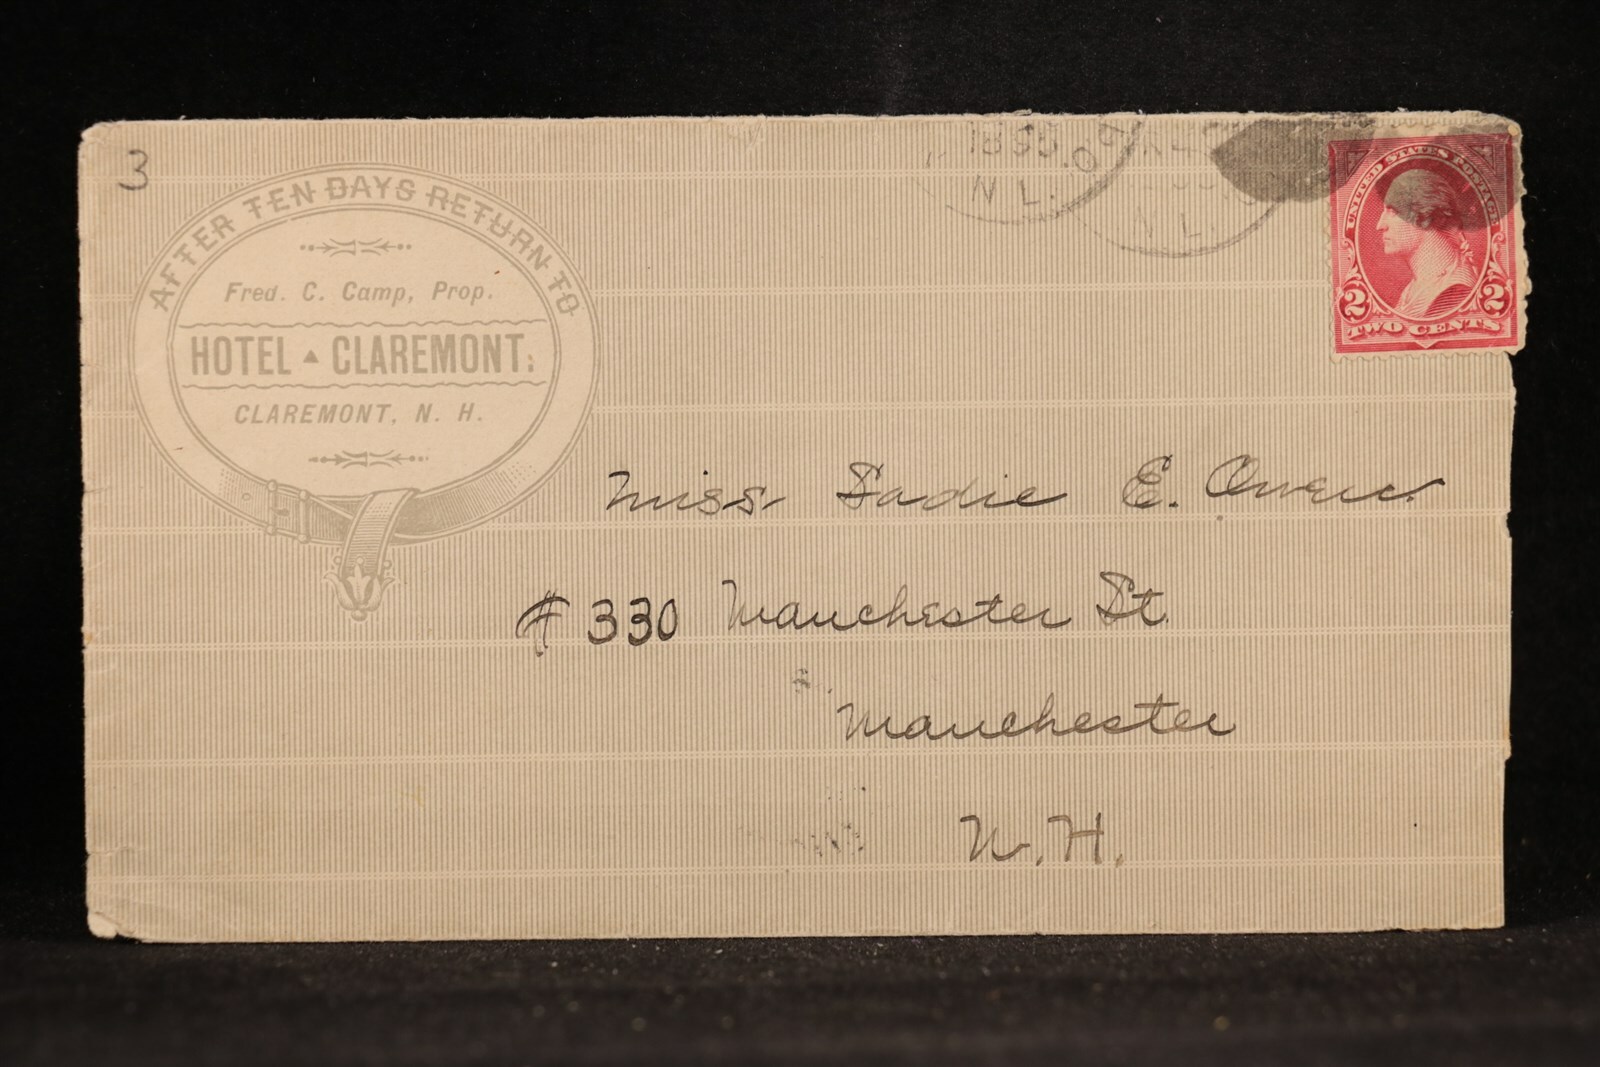 3
AFTER TEN DAYS RETURN TO
Fred. C. Camp, Prop.
HOTEL ▲ CLAREMONT.
CLAREMONT, N. H.
N L.
N L
UNITED STATES POSTAGE
2 2
TWO CENTS
Miss Sadie E. Owen.
# 330 Manchester St.
Manchester
N. H.